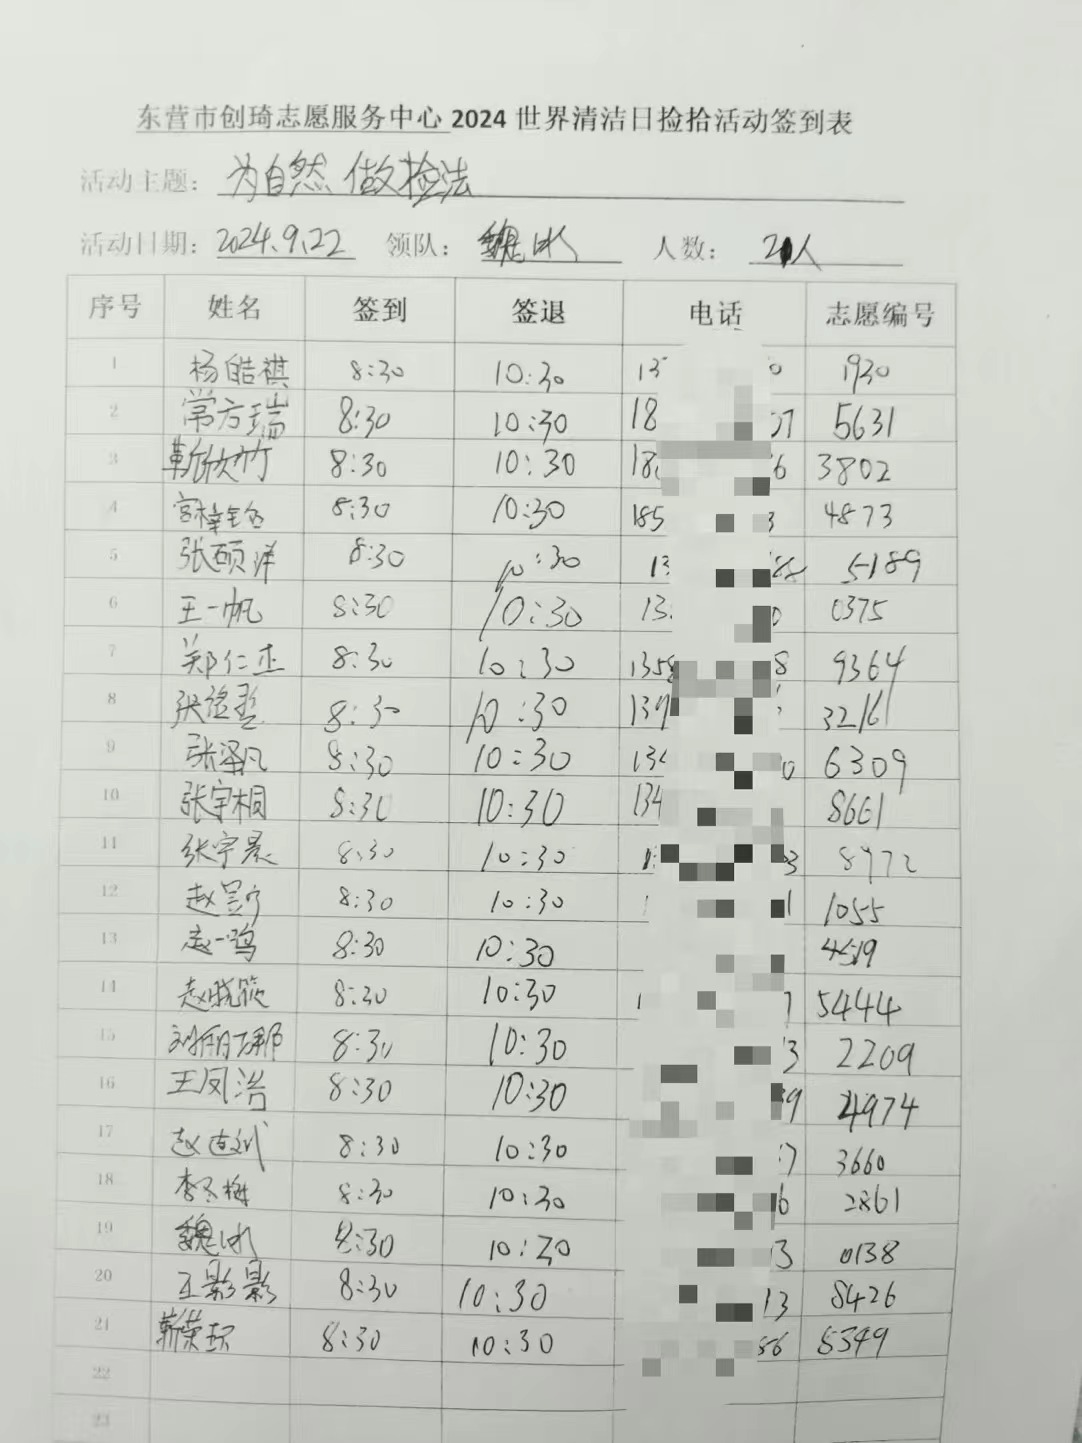 东营市创琦志愿服务中心 2024 世界清洁日捡拾活动签到表
活动主题：为自然 做检法
活动日期：2024.9.22 领队：魏冰 人数：21人
序号 姓名 签到 签退 电话 志愿编号
1 杨皓祺 8:30 10:30 13 0 1930
2 常方瑞 8:30 10:30 18 07 5631
3 靳欣竹 8:30 10:30 18 6 3802
4 8:30 10:30 185 3 4873
5 张颐洋 8:30 10:30 13 88 5189
6 王一帆 8:30 10:30 13 0 0375
7 郑仁杰 8:30 10:30 1358 8 9364
8 8:30 10:30 139 3216
9 张泽凡 8:30 10:30 134 0 6309
10 张宇桐 8:30 10:30 134 8661
11 张宇晨 8:30 10:30 3 8972
12 8:30 10:30 1 1 1055
13 赵一鸣 8:30 10:30 4519
14 赵晓筱 8:30 10:30 1 7 5444
15 8:30 10:30 3 2209
16 王凤浩 8:30 10:30 9 4974
17 8:30 10:30 7 3660
18 李冬梅 8:30 10:30 6 2861
19 魏冰 8:30 10:30 3 0138
20 王影影 8:30 10:30 13 8426
21 8:30 10:30 56 8349
22
23